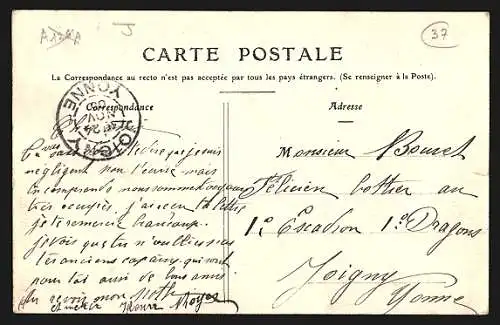 37
CARTE POSTALE
La Correspondance au recto n'est pas acceptée par tous les pays étrangers. (Se renseigner à la Poste).
Correspondance
Adresse
JOIGNY
YONNE
NOV
Tu vas être que je suis
négligent non l'écrire mais
tu comprends nous sommes toujours
très occupés j'ai reçu ta lettre
je te remercie beaucoup.
je vois que tu n'oublies pas
tes anciens copains qui sont
pour toi aussi de bons amis
au revoir mon
Monsieur Bouret
Félicien bottier au
1e Escadron 1e Dragons
Joigny
Yonne